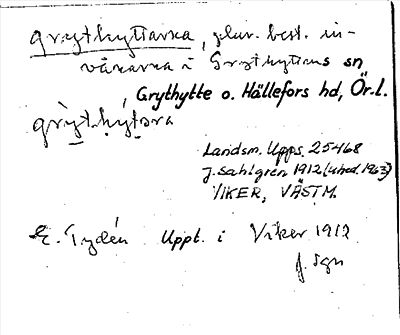 grythyttarna, plur. best. in-
vånarna i Grythyttans sn
Grythytte o. Hällefors hd, Ör.l.
grỳthýtɒra
Landsm. Upps. 25468
J. Sahlgren 1912 (uhed. 1963)
VIKER, VÄSTM.
E. Tydén Uppt. i Viker 1912
J. Sgn